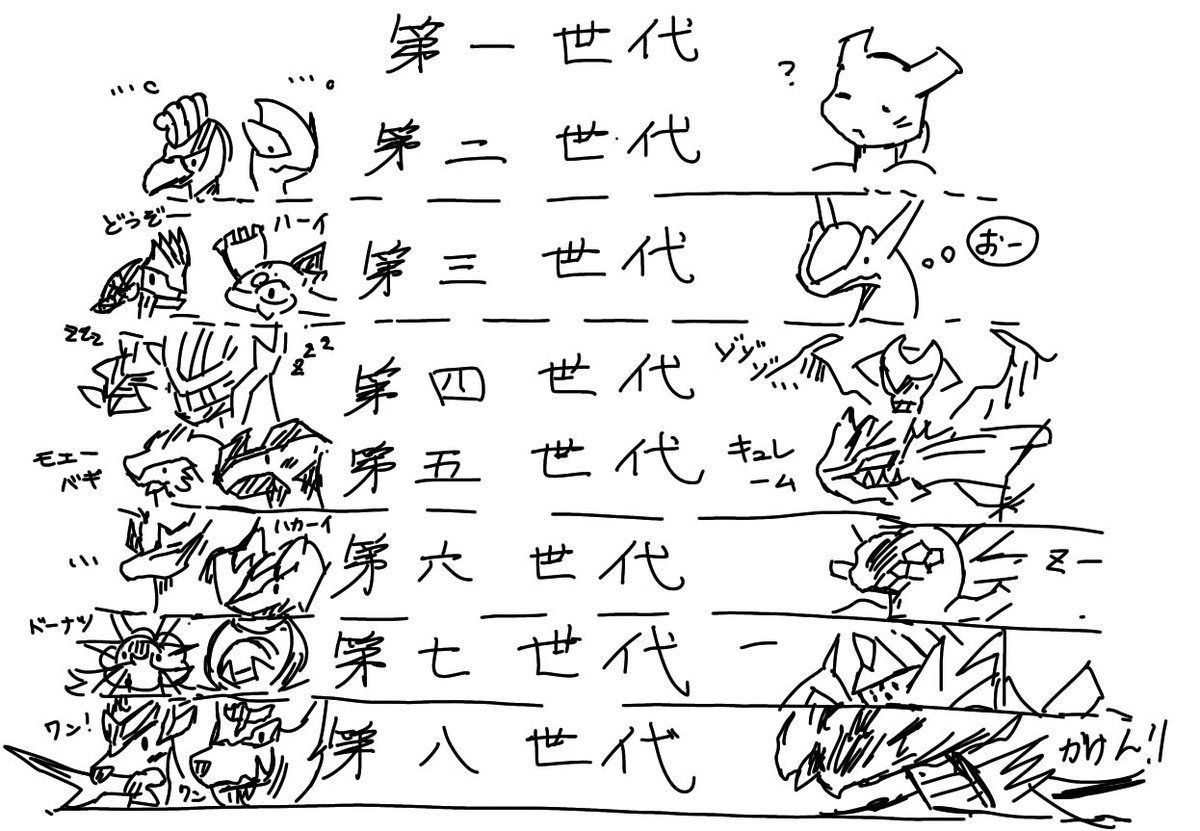 第一世代
…。
…。
?
第二世代
どうぞー
ハーイ
第三世代
おー
zzz
zzz
第四世代
ゾゾゾ…
モエー
バギ
第五世代
キュレ
ーム
…
ハカーイ
第六世代
Zー
ドーナツ
第七世代
ー
ワン!
ワン
第八世代
かけん!!